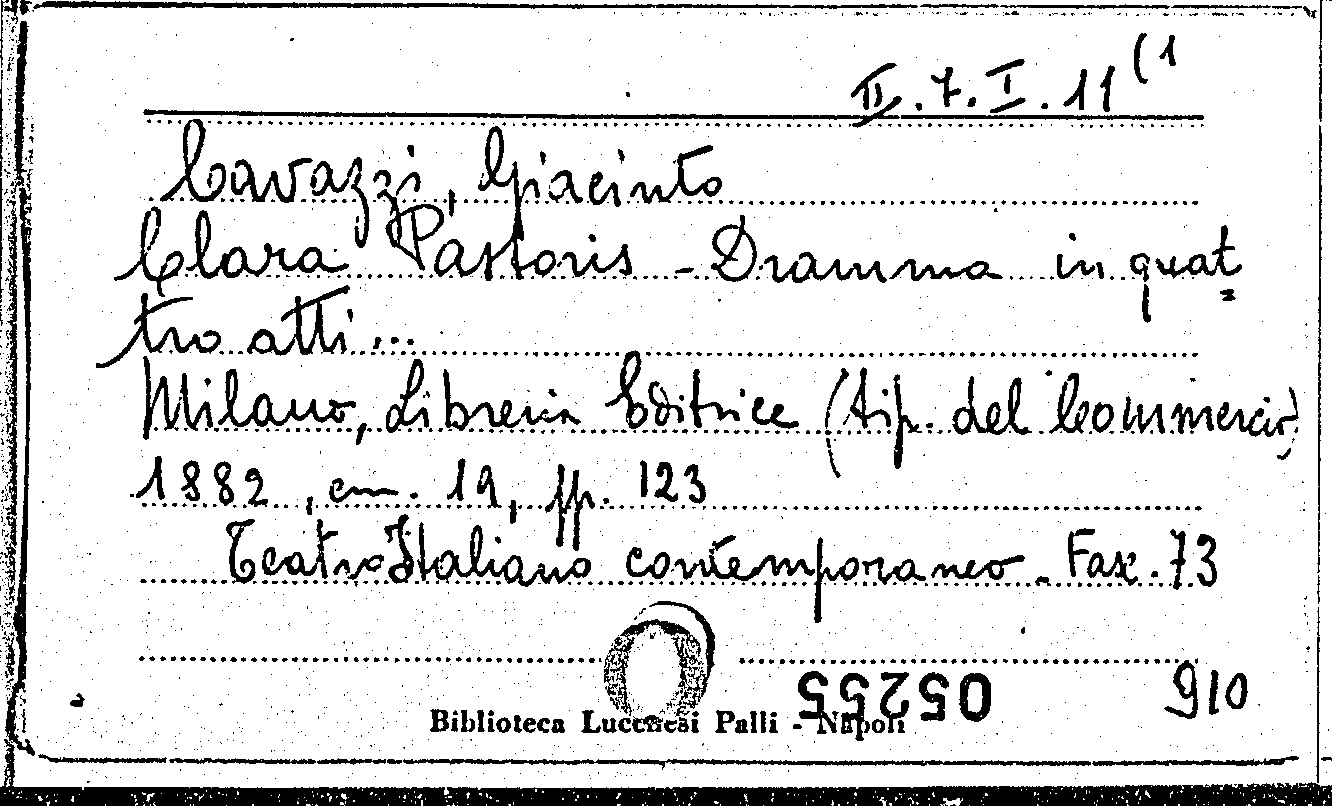 II.7.I.11(1
Cavazzi, Giacinto
Clara Pastoris - Dramma in quat=
tro atti...
Milano, Libreria Editrice (tip. del Commercio)
1882, cm. 19, pp. 123
Teatro Italiano contemporaneo - Fasc. 73
05255
910
Biblioteca Lucchesi Palli - Napoli